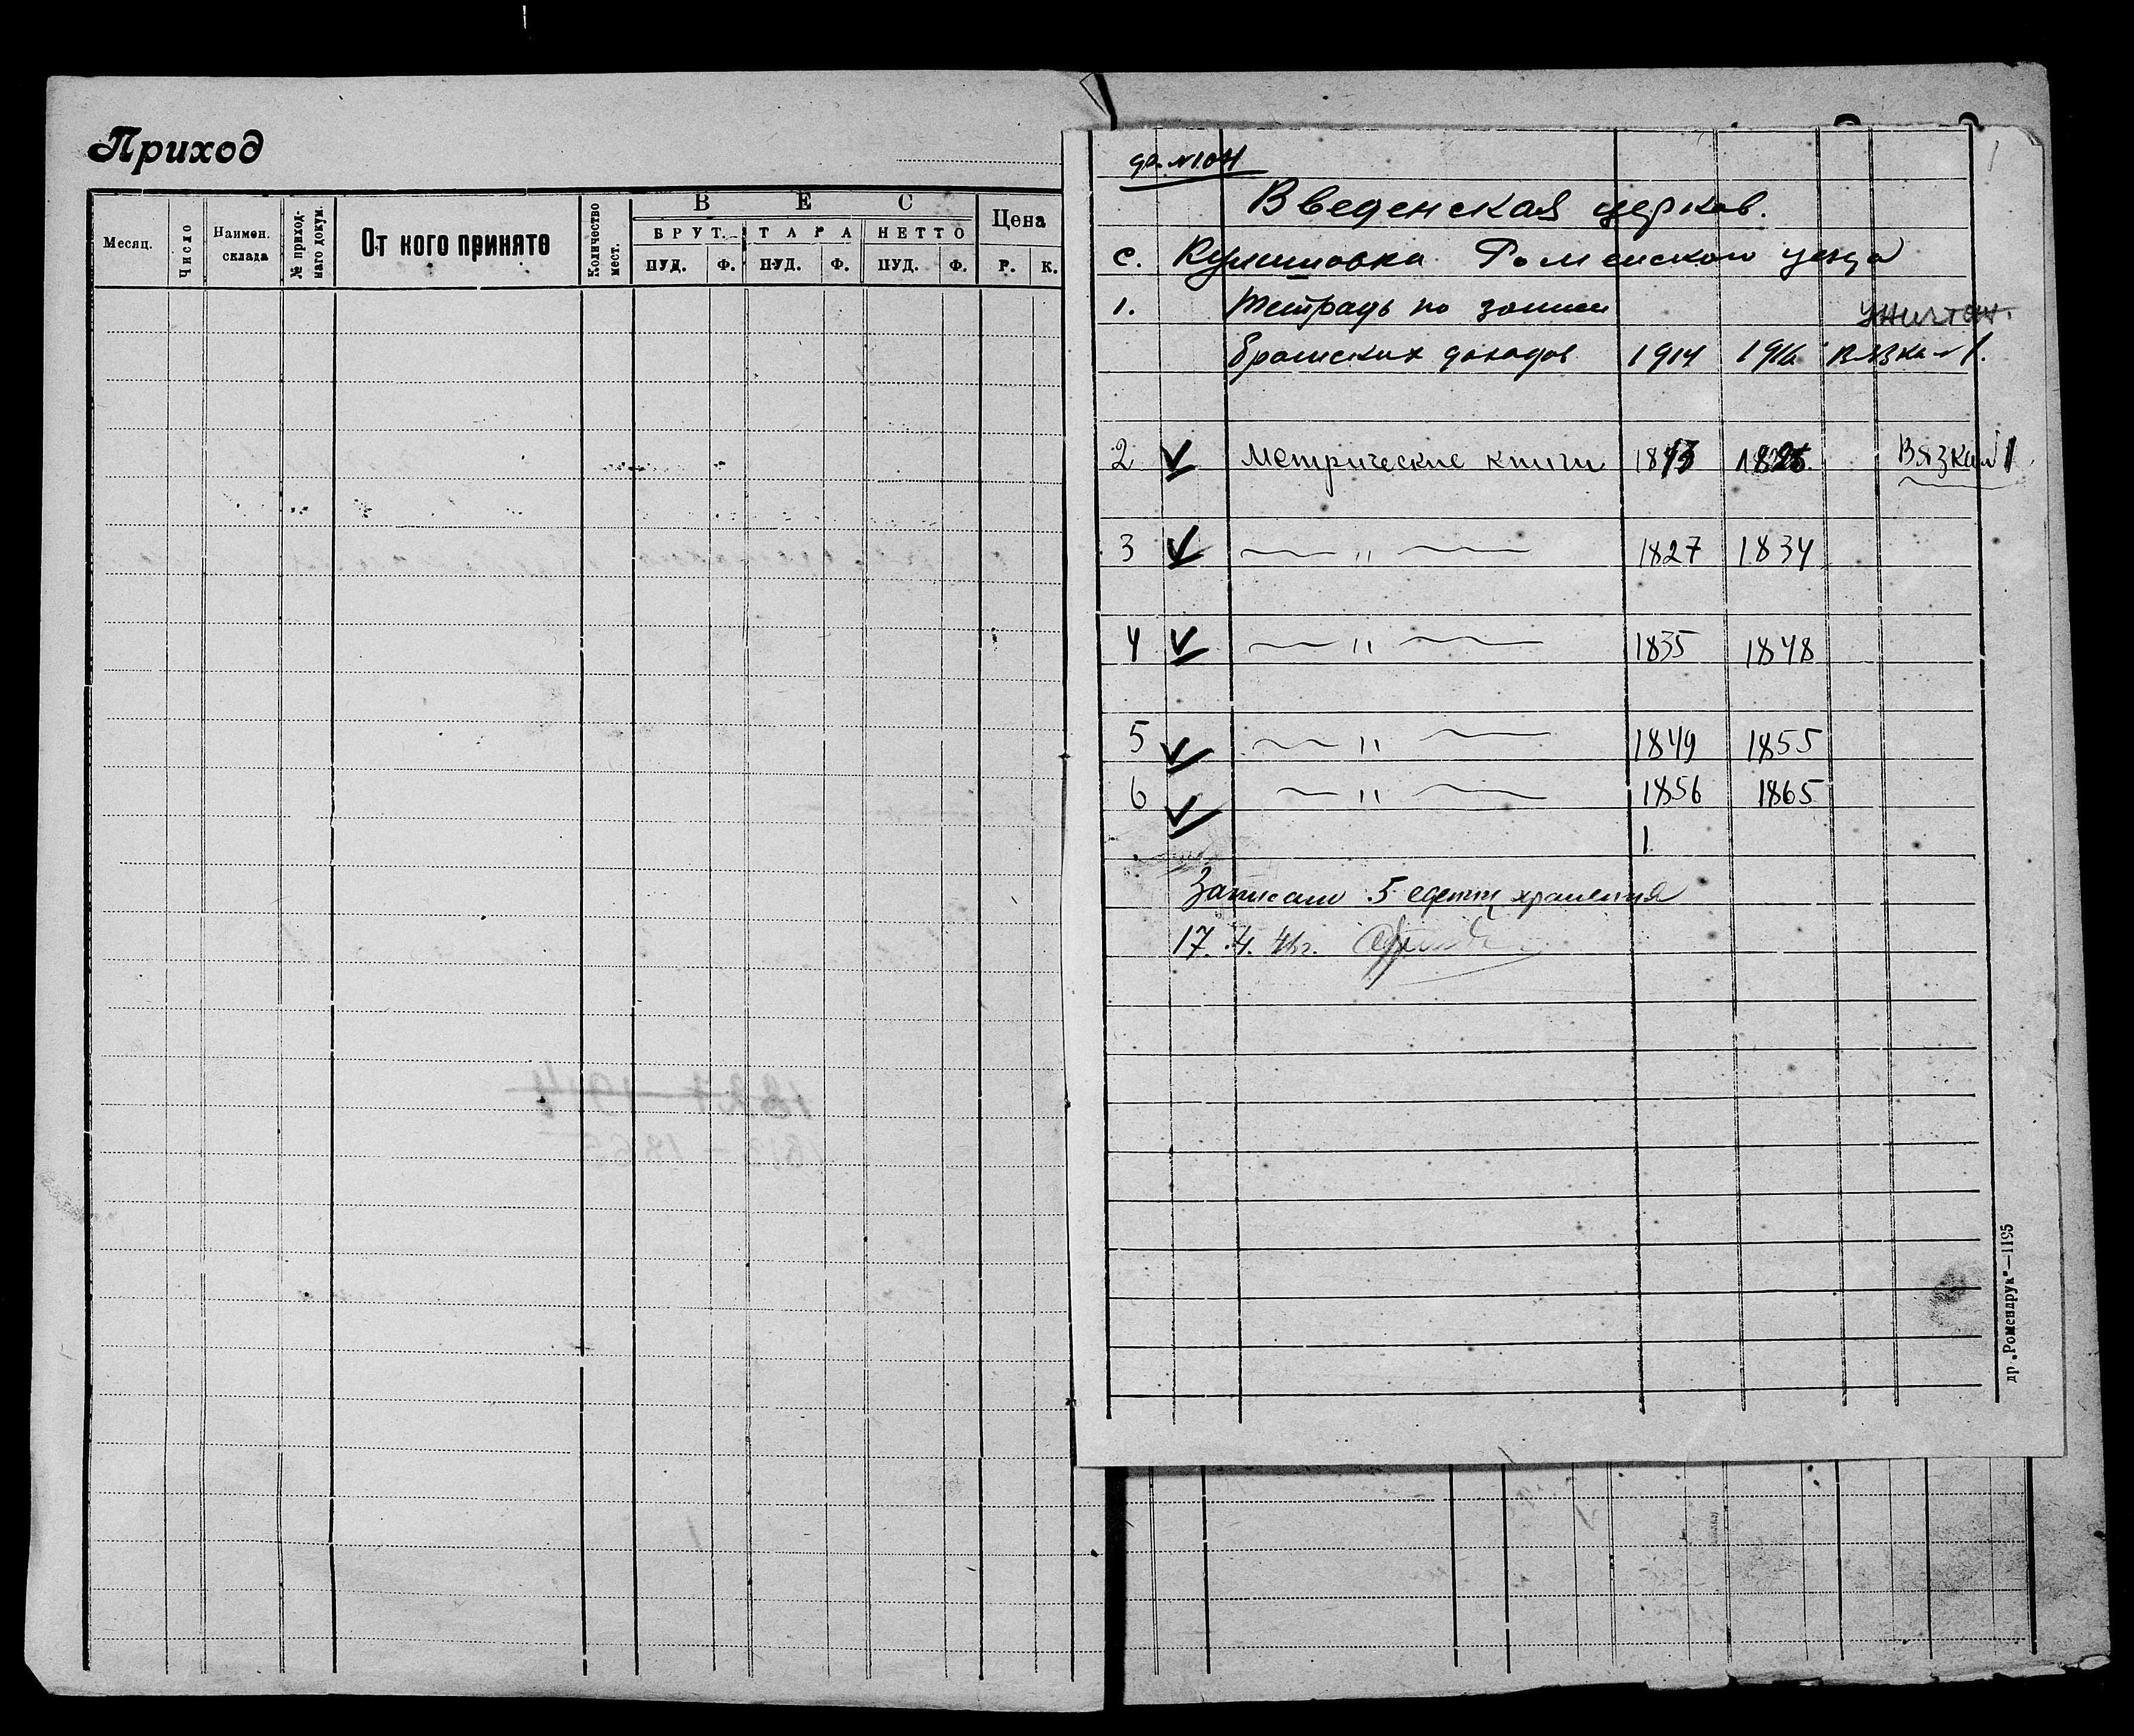 Приход
Месяц.
Число
Наимен. склада
№ приход-
наго докум.
От кого принято
Количество
мест.
ВЕС
БРУТ. ТАРА НЕТТО
ПУД. Ф. ПУД. Ф. ПУД. Ф.
Цена
Р. К.
Введенская церков.
с. Кулишовка Роменского уезда
1. Тетрадь по записи
уничтож.
братских доходов 1914 1916 Вязка №1.
2 Метрические книги Вязка №1
3 — " — 1827 1834
4 — " — 1835 1848
5 — " — 1849 1855
6 — " — 1856 1865
1
Записано 5 единиц хранения
17. 4. 46г.
1
др „Ромендрук"—1195